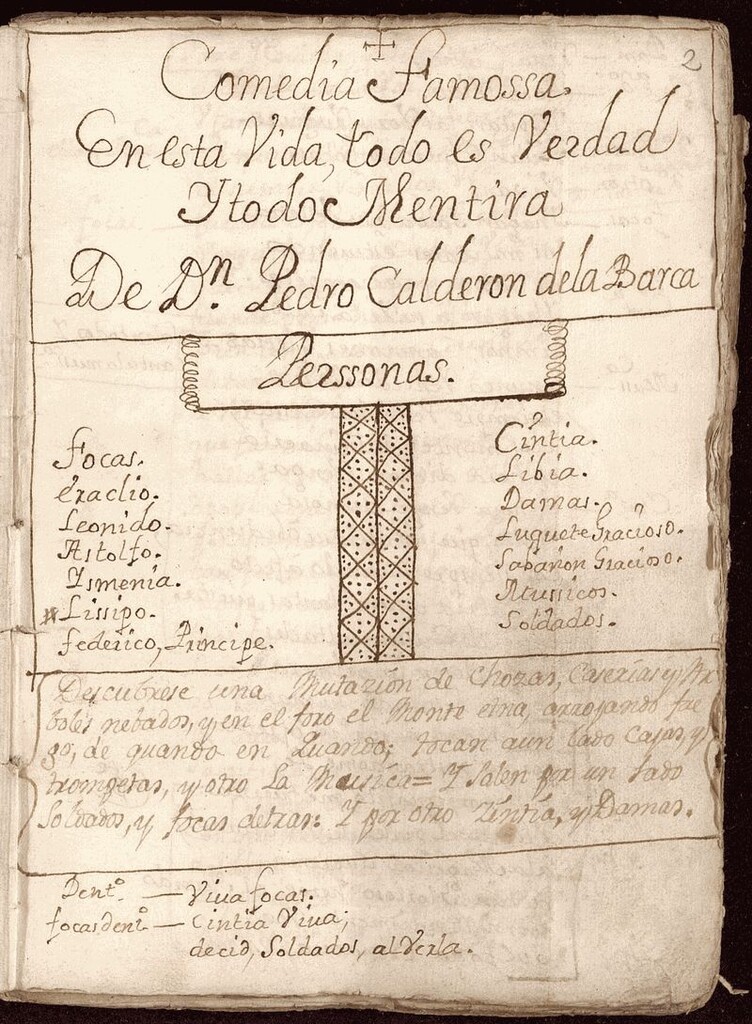 2
Comedia Famossa.
En esta Vida, todo es Verdad
Y todo Mentira
De Dn. Pedro Calderon dela Barca
Perssonas.
Focas.
Eraclio.
Leonido.
Astolfo.
Ismenia.
Lissipo.
Federico, Principe.
Cintia.
Libia.
Damas.
Luquete Gracioso.
Sabañon Gracioso.
Mussicos.
Soldados.
Descubrese una Mutazion de Chozas, Caserias y Ar
boles nebados, y en el foro el Monte etna, arrojando fue
go, de quando en Quando; tocan aun lado Cajas, y
trompetas, y otro La Musica= Y Salen por un lado
Soldados, y focas detras: Y por otro Zintia, y Damas.
Dento. — Viva focas.
focas dento. — Cintia Viva;
decid, Soldados, al Verla.